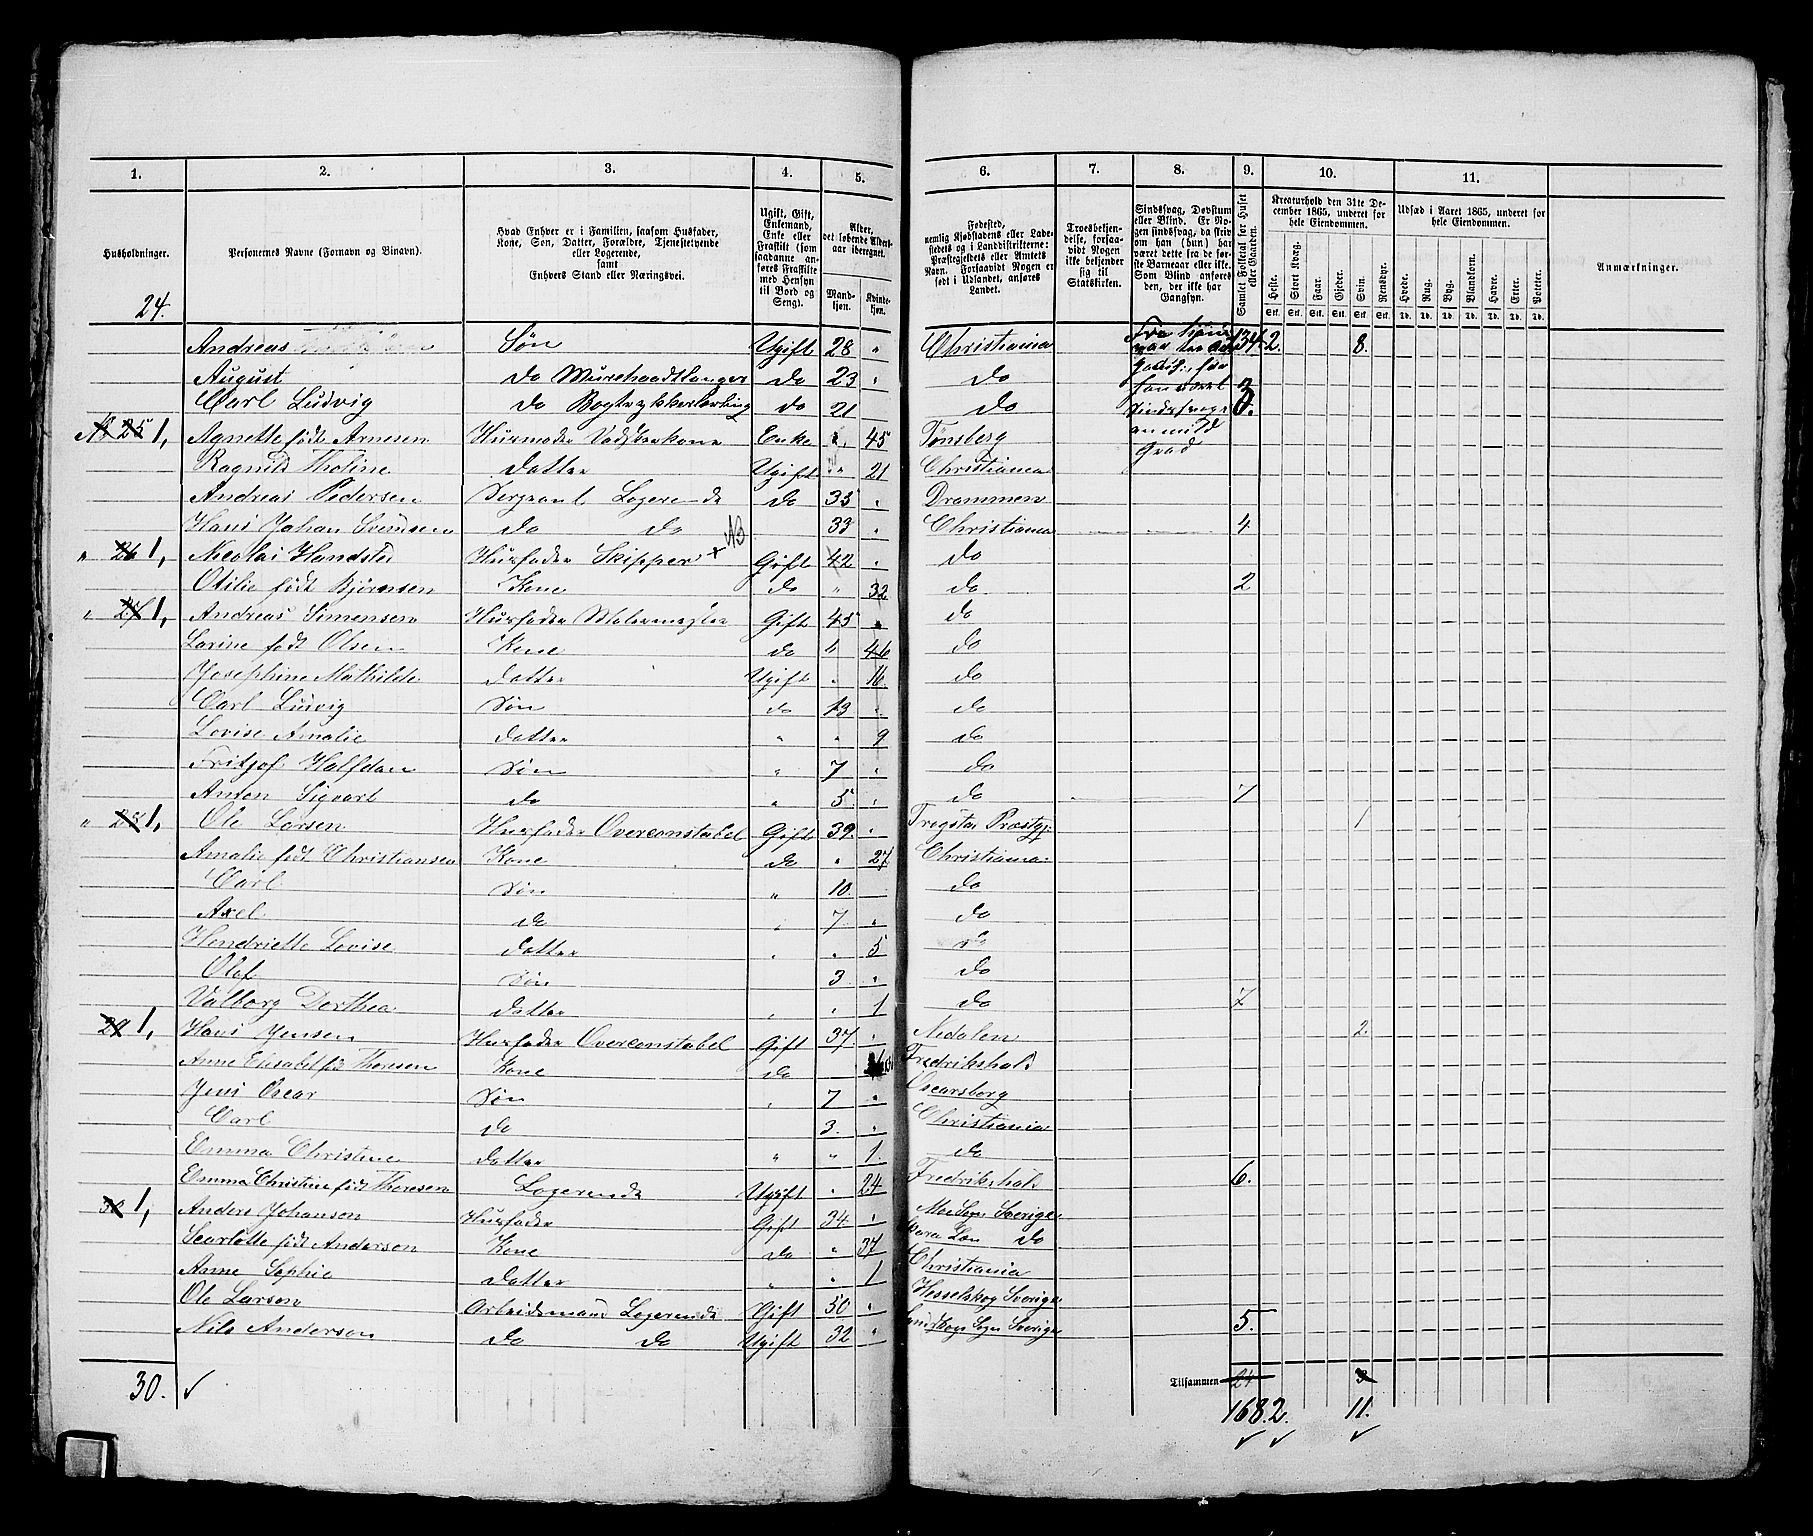 1. 2. 3. 4. 5. 6. 7. 8. 9. 10. 11.
Husholdninger.
Personernes Navne (Fornavn og Binavn).
Hvad Enhver er i Familien, saasom Husfader, Kone, Søn, Datter, Forældre, Tjenestetyende eller Logerende, samt Enhvers Stand eller Næringsvei.
Ugift, Gift, Enkemand, Enke eller Fraskilt (som saadanne anføres Fraskilte med Hensyn til Bord og Seng).
Alder, det løbende Aldersaar iberegnet.
Mandkjøn. Kvindekjøn.
Fødested, nemlig Kjøbstadens eller Ladestedets og i Landdistrikterne: Præstegjeldets eller Amtets Navn. Forsaavidt Nogen er født i Udlandet, anføres Landet.
Troesbekjendelse, forsaavidt Nogen ikke bekjender sig til Statskirken.
Sindssvag, Døvstum eller Blind. Er Nogen sindssvag, da skriv om han (hun) har været dette fra de første Barneaar eller ikke. Som Blind anføres den, der ikke har Gangsyn.
Samlet Folketal for Huset eller Gaarden.
Kreaturhold den 31te December 1865, underet for hele Eiendommen.
Heste. Stort Kvæg. Faar. Gjeder. Svin. Rensdyr.
Udsæd i Aaret 1865, underet for hele Eiendommen.
Hvede. Rug. Byg. Blandkorn. Havre. Erter. Poteter.
Anmærkninger.
24.
Andreas Søn Ugift 28 " Christiania 134 2. 8.
August do do 23 " do
Carl Ludvig do Bogtrykkerlærling do 21 do 3.
N 25 1, Agnette født Arnesen Husmoder Vadskerkone Enke " 45 Tønsberg
Ragnild Tholine Datter Ugift " 21 Christiania
Andreas Pedersen Sergeant Logerende do 35 " Drammen
Hans Johan Svendsen do do 33 " Christiania 4
" 26 1, Nicolai Handsted Husfader Skipper + NB Gift 42 " do
Otilie født Bjørnsen Kone do " 32 do 2
" 27 1, Andreas Simensen Husfader Malermester Gift 45 " do
Lorine født Olsen Kone do " 46 do
Josephine Mathilde Datter Ugift " 16 do
Carl Ludvig Søn do 13 " do
Lovise Amalie Datter " " 9 do
Fritjof Halfdan Søn " 7 " do
Anton Sigvart do " 5 " do 7
" 28 1, Ole Larsen Husfader Overconstabel Gift 39. " Trøgstad Præstgj. 1
Amalie født Christiansen Kone do " 27 Christiania
Carl Søn " 10. do
Axel do " 7 " do
Hendriette Lovise Datter " " 5 do
Olaf Søn 3 " do
Valborg Dorthea Datter " " 1 do 7
29 1, Hans Jensen Husfader Overconstabel Gift 37 " Nedalen 2.
Anne Elisabet fød Thoresen Kone do Fredrikshald
Jens Oscar Søn " 7 " Oscarsborg
Carl do 3. " Christiania
Emma Christine Datter " " 1. do
Emma Christine født Thoresen Logerende Ugift " 24 Fredrikshald 6.
30 1, Anders Johanson Husfader Gift 34 " Sverige
Scarlotte født Anderson Kone do " 37 Skara Læn do
Anne Sophie Datter " " 1 Christiania
Ole Larson Arbeidsmand Logerende Gift 50 " Hesselskog Sverige
Nils Anderson do do Ugift 32 " Sogn Sverige 5.
30. ✓ Tilsammen 24 3
168 2. 11.
✓ ✓ ✓